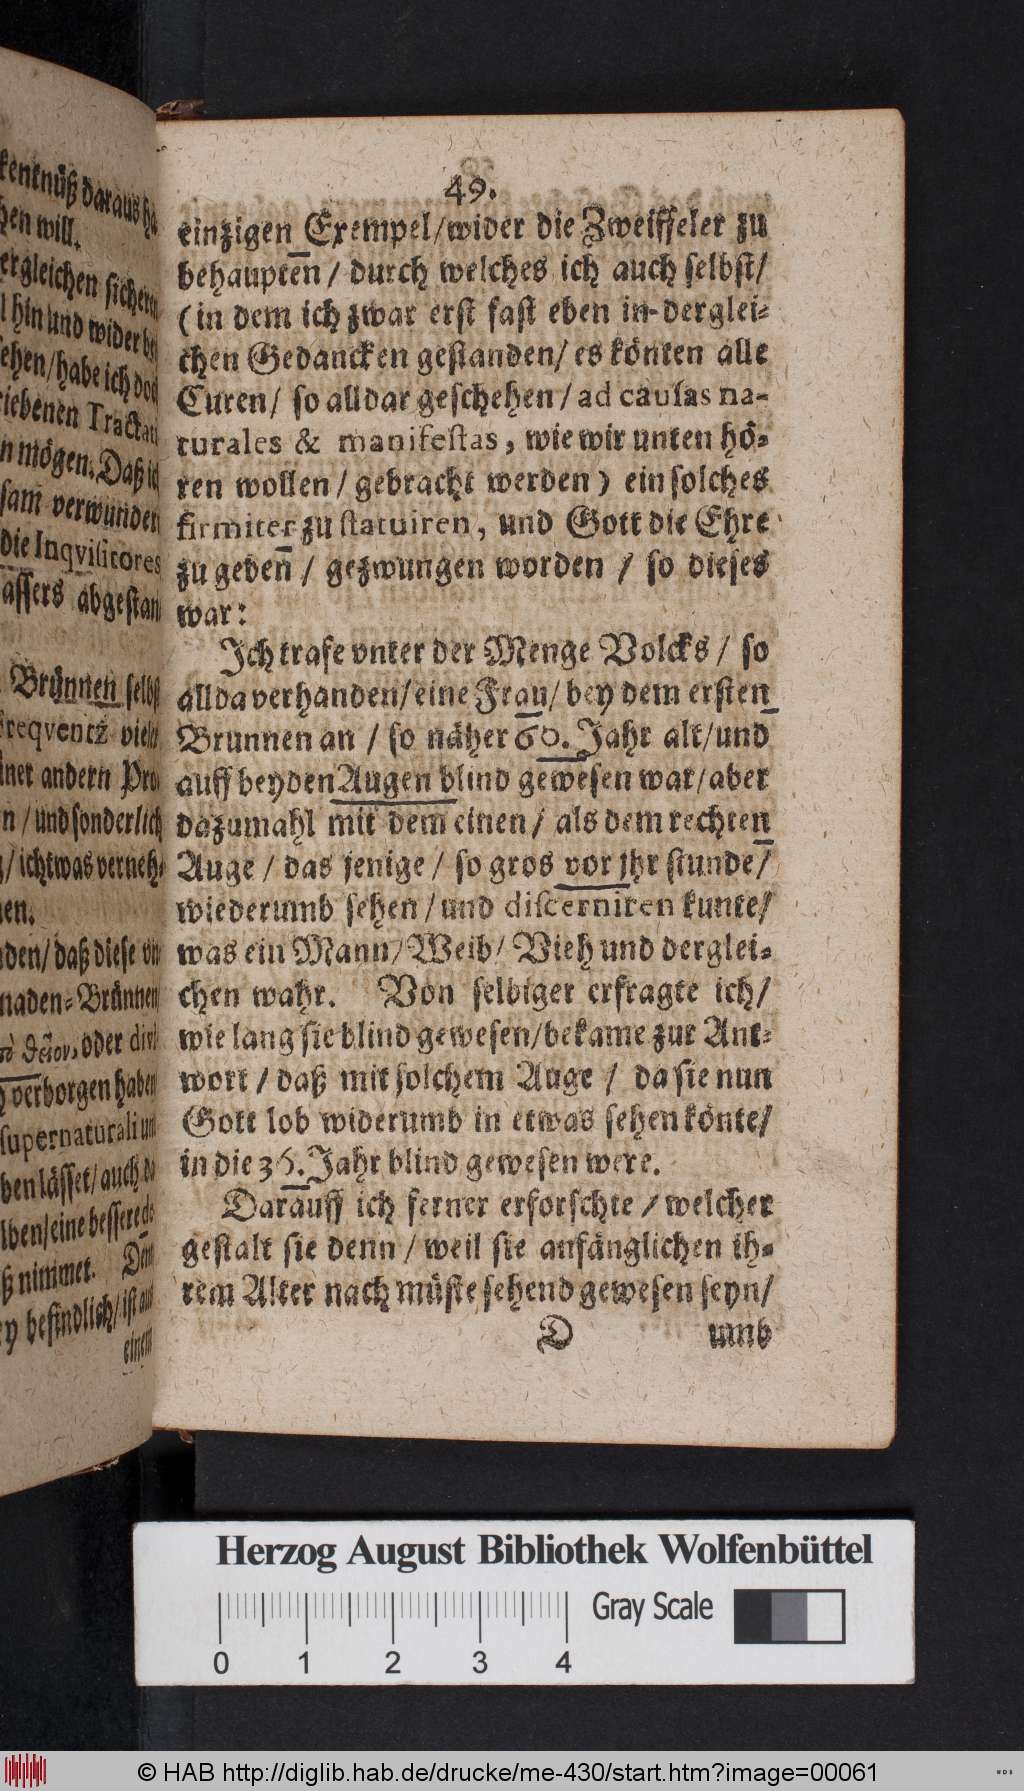 kentnüß daraus
hen will.
ergleichen sichern
l hin und wider
ehen / habe ich
riebenen Tractat
n mögen. Daß
sam verwundert
die Inqvisitores
assers abgestan
Brünnen selbst
freqventz viel
iner andern Pro
n / und sonderlich
/ ichtwas verneh-
en.
den / daß diese
naden-Brünnen
oder
verborgen haben
supernaturali
ben lässet / auch
lben / eine bessere
ß nimmet. Denn
ey befindlich / ist
einem
49.
einzigen Exempel / wider die Zweiffeler zu
behaupten / durch welches ich auch selbst /
(in dem ich zwar erst fast eben in derglei-
chen Gedancken gestanden / es könten alle
Curen / so alldar geschehen / ad causas na-
turales & manifestas, wie wir unten hö-
ren wollen / gebracht werden) ein solches
firmiter zu statuiren, und Gott die Ehre
zu geben / gezwungen worden / so dieses
war:
Ich trafe unter der Menge Volcks / so
allda verhanden / eine Frau / bey dem ersten
Brunnen an / so näher 60. Jahr alt / und
auff beyden Augen blind gewesen war / aber
dazumahl mit dem einen / als dem rechten
Auge / das jenige / so gros vor jhr stunde /
wiederumb sehen / und discerniren kunte /
was ein Mann / Weib / Vieh und derglei-
chen wahr. Von selbiger erfragte ich /
wie lang sie blind gewesen / bekame zur Ant-
wort / daß mit solchem Auge / da sie nun
Gott lob widerumb in etwas sehen könte /
in die 36. Jahr blind gewesen were.
Darauff ich ferner erforschte / welcher
gestalt sie denn / weil sie anfänglichen ih-
rem Alter nach müste sehend gewesen seyn /
D umb
Herzog August Bibliothek Wolfenbüttel
Gray Scale
0 1 2 3 4
© HAB http://diglib.hab.de/drucke/me-430/start.htm?image=00061